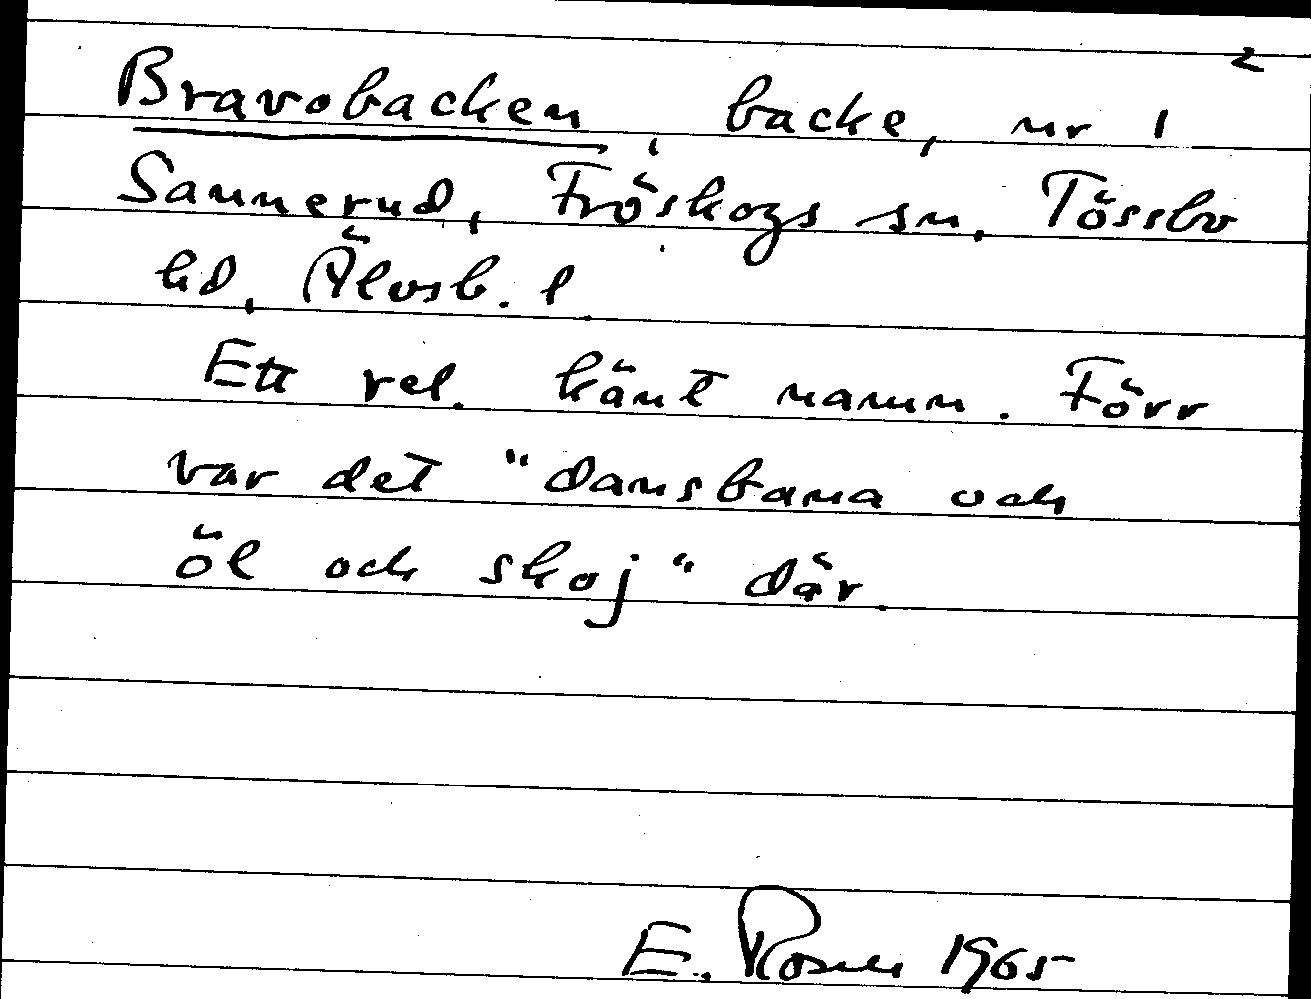 2
Bravobacken, backe, nr 1
Sannerud, Fröskogs sn, Tössbo
hd, Älvsb. l.
Ett rel. känt namn. Förr
var det "dansbana och
öl och skoj" där.
E. Rosne 1965